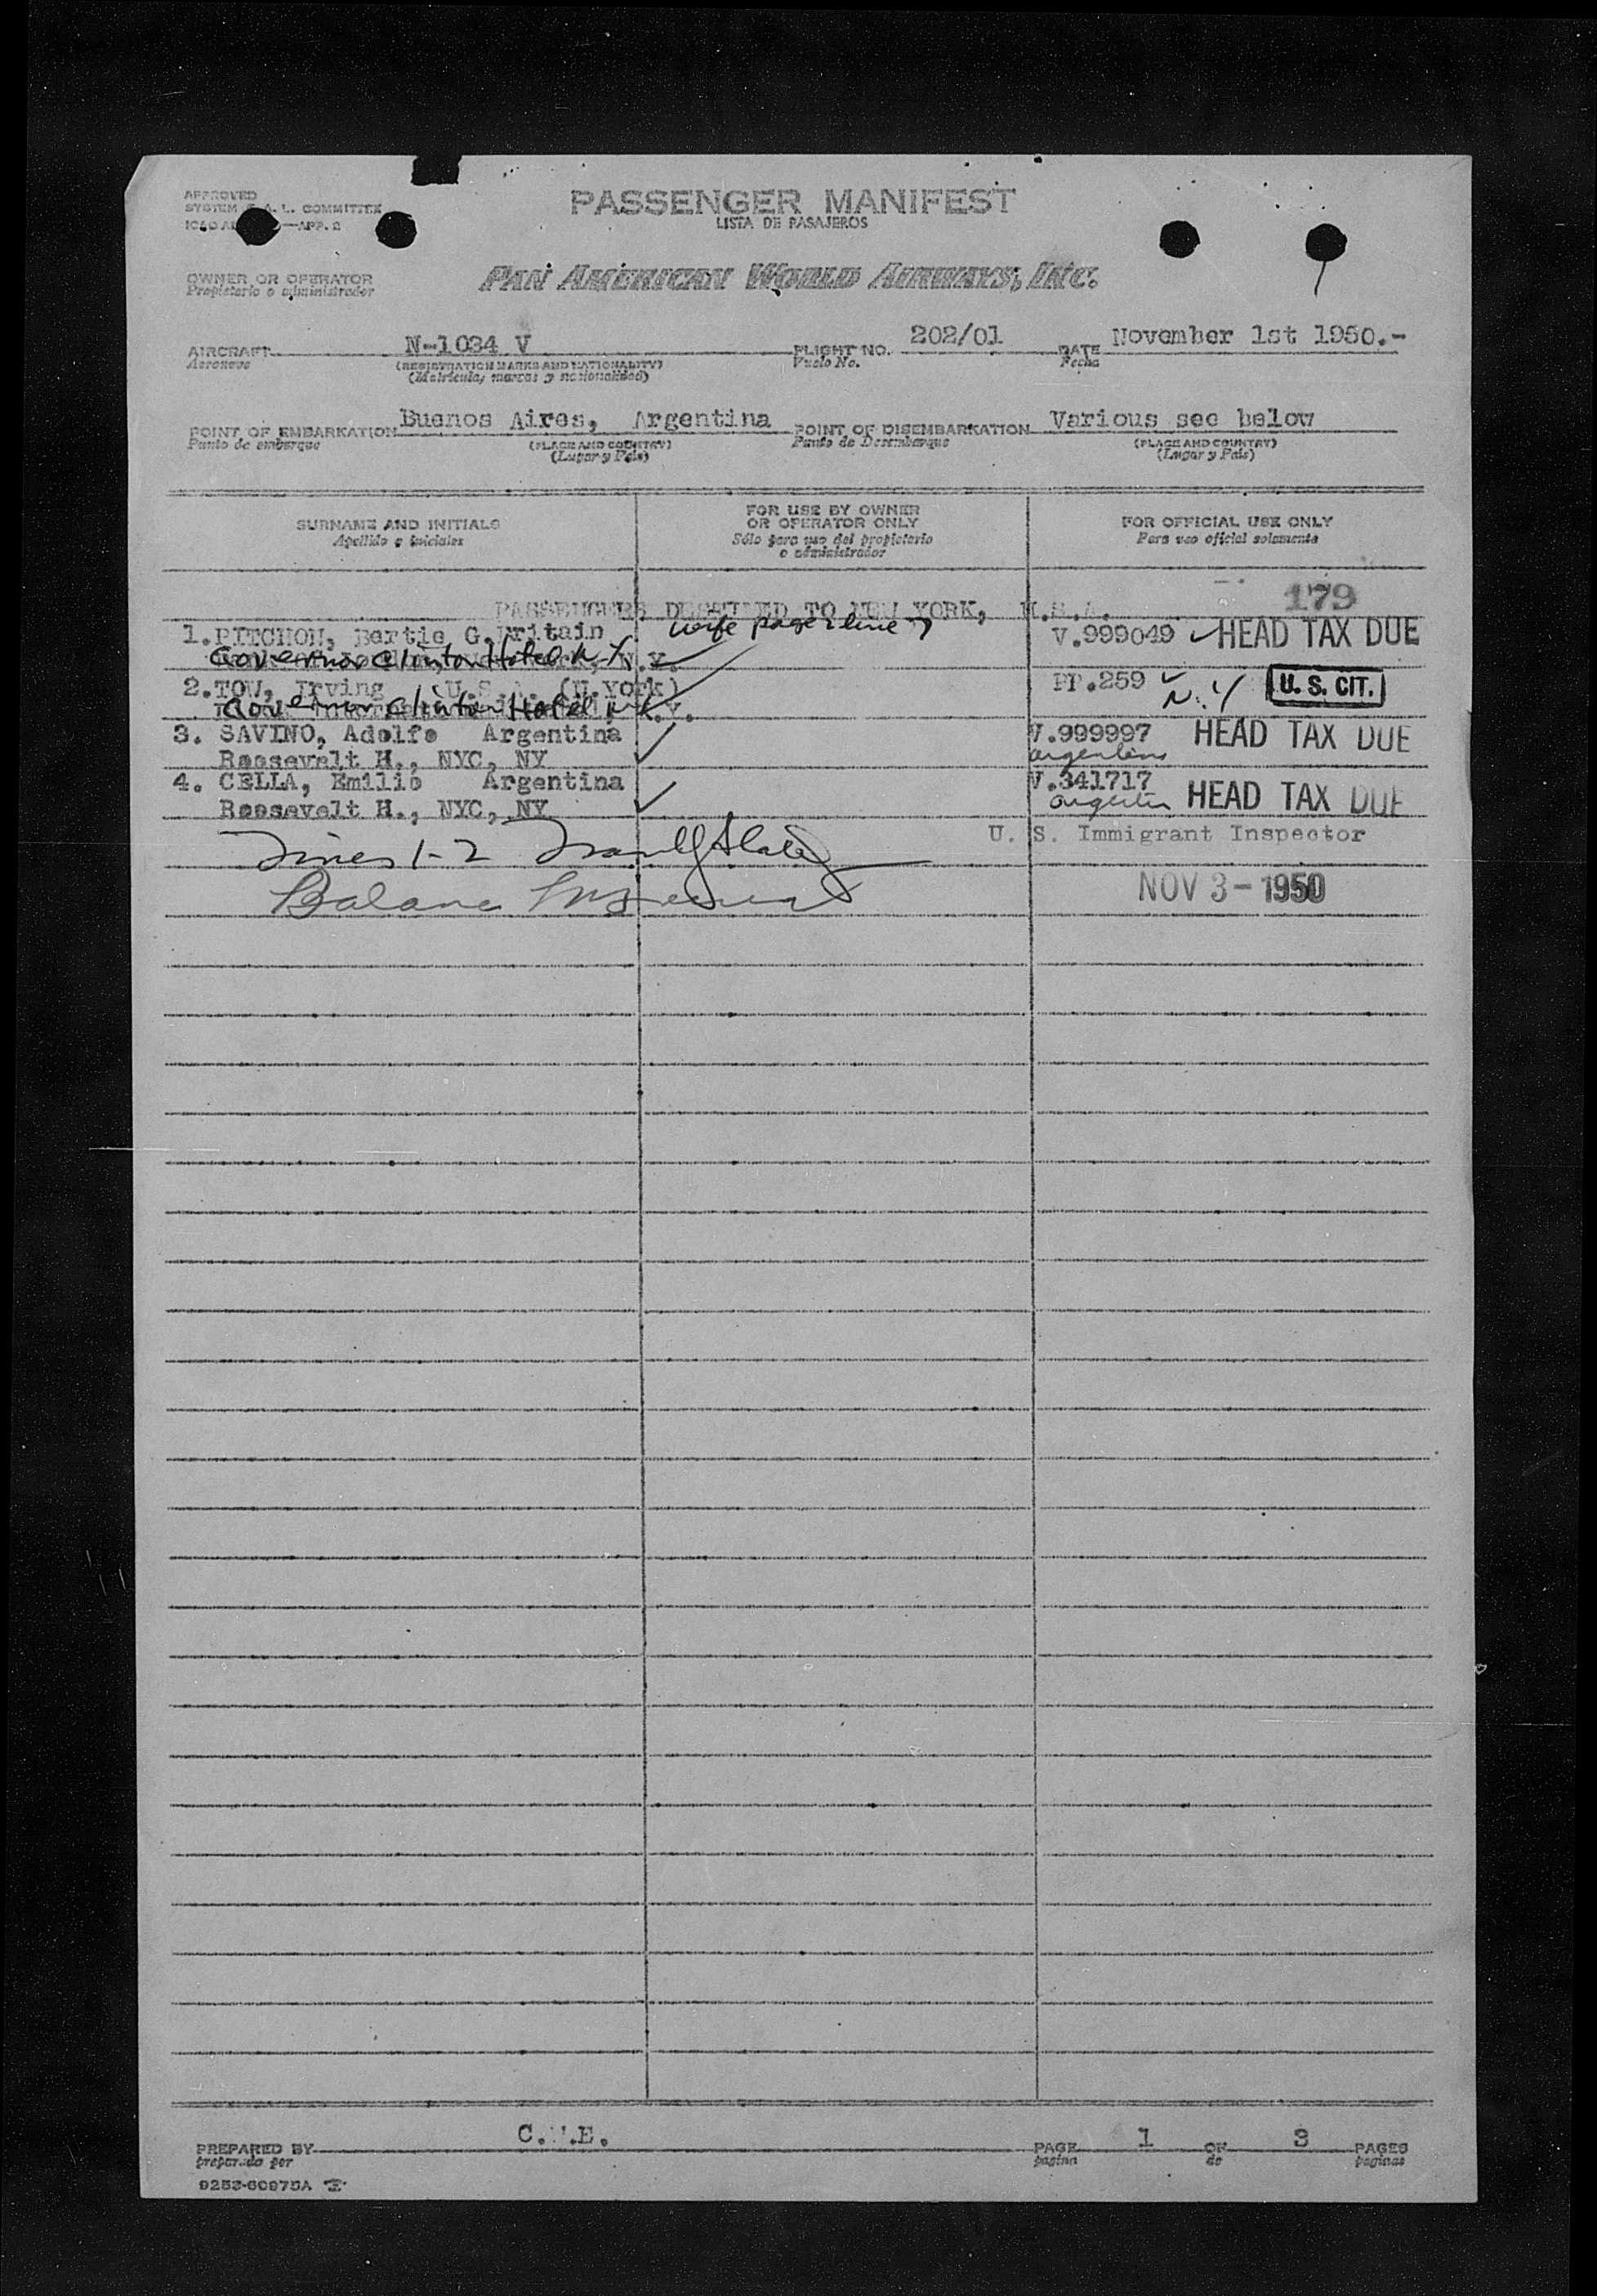 APPROVED
SYSTEM F. A. L. COMMITTEE
—APP. 2
PASSENGER MANIFEST
LISTA DE PASAJEROS
OWNER OR OPERATOR
Propietario o administrador
PAN AMERICAN WORLD AIRWAYS, INC.
AIRCRAFT N-1034 V FLIGHT NO. 202/01 DATE November 1st 1950.-
Aeronave (REGISTRATION MARKS AND NATIONALITY) Vuelo No. Fecha
(Matrícula, marcas y nacionalidad)
POINT OF EMBARKATION Buenos Aires, Argentina POINT OF DISEMBARKATION Various see below
Punto de embarque (PLACE AND COUNTRY) Punto de Desembarque (PLACE AND COUNTRY)
(Lugar y País) (Lugar y País)
SURNAME AND INITIALS FOR USE BY OWNER OR OPERATOR ONLY FOR OFFICIAL USE ONLY
Apellido e iniciales Sólo para uso del propietario o administrador Para uso oficial solamente
179
PASSENGERS DESTINED TO NEW YORK, U.S.A.
1. PITCHON, Bertie G.Britain wife page 2 line 7 V.999049 HEAD TAX DUE
Governor Clinton Hotel N.Y.
2. TOW, Irving U.S.A. (N.York) PP.259 N.Y U. S. CIT.
Governor Clinton Hotel N.Y.
3. SAVINO, Adolfo Argentina V.999997 HEAD TAX DUE
Roosevelt H., NYC, NY argentine
4. CELLA, Emilio Argentina V.341717 HEAD TAX DUE
Roosevelt H., NYC, NY
U. S. Immigrant Inspector
Lines 1-2
Balance
NOV 3 - 1950
PREPARED BY PAGE 1 OF 3 PAGES
preparado por pagina de paginas
9253-60975A